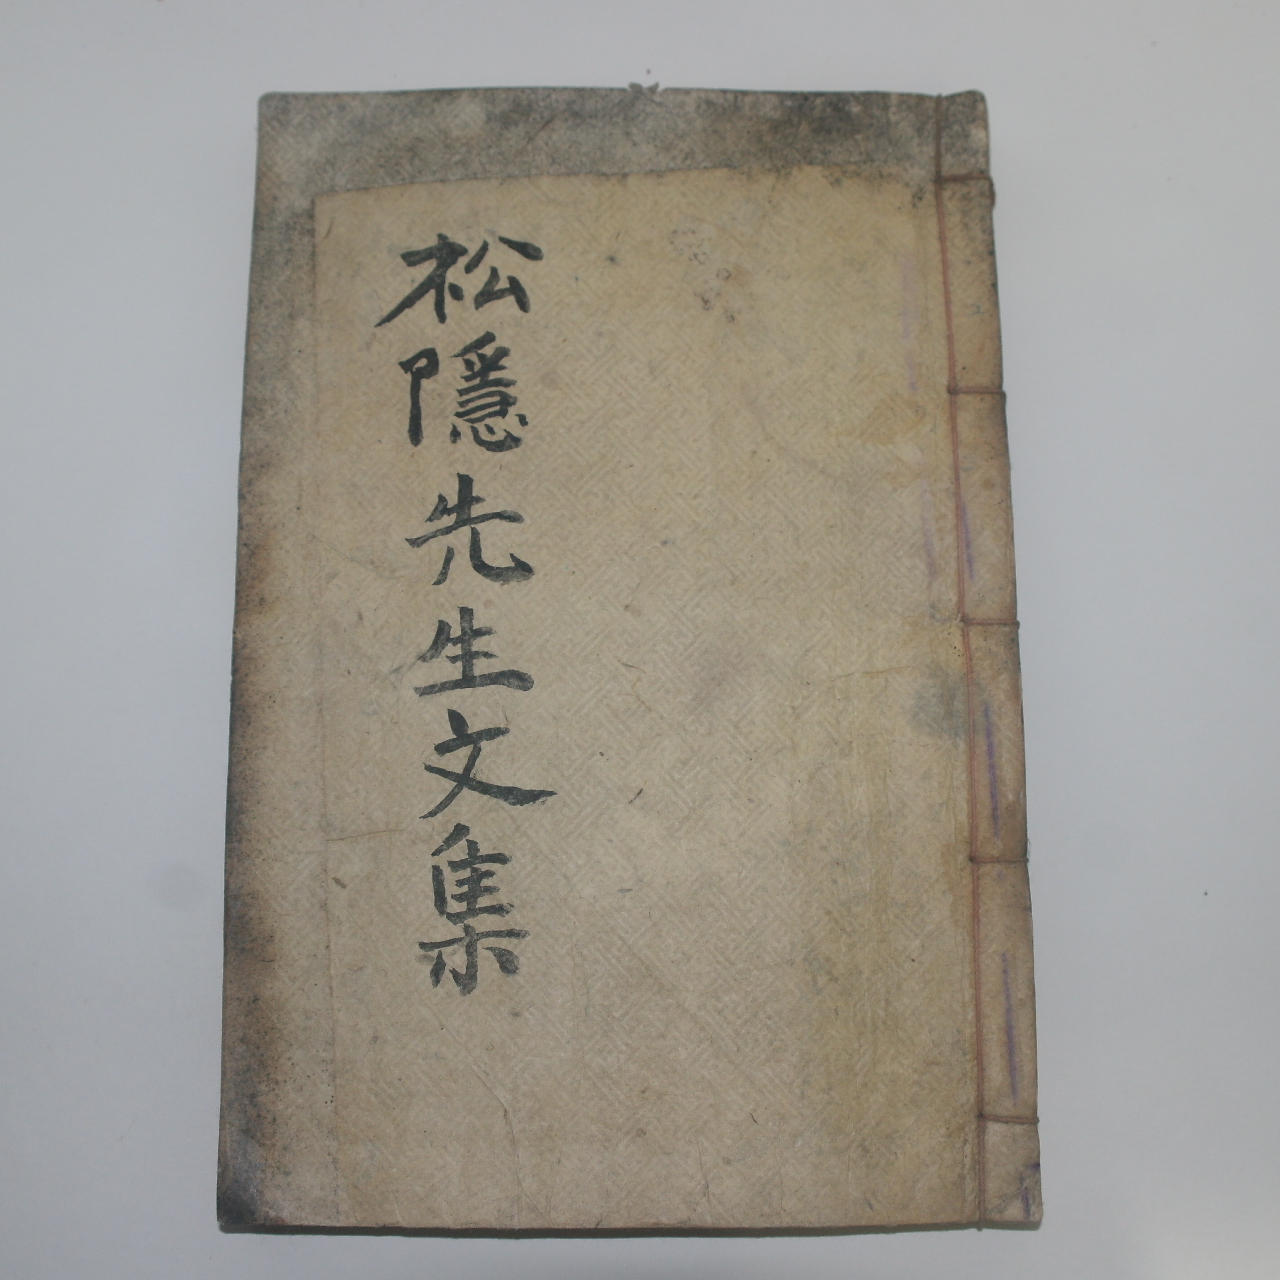 松隱先生文集